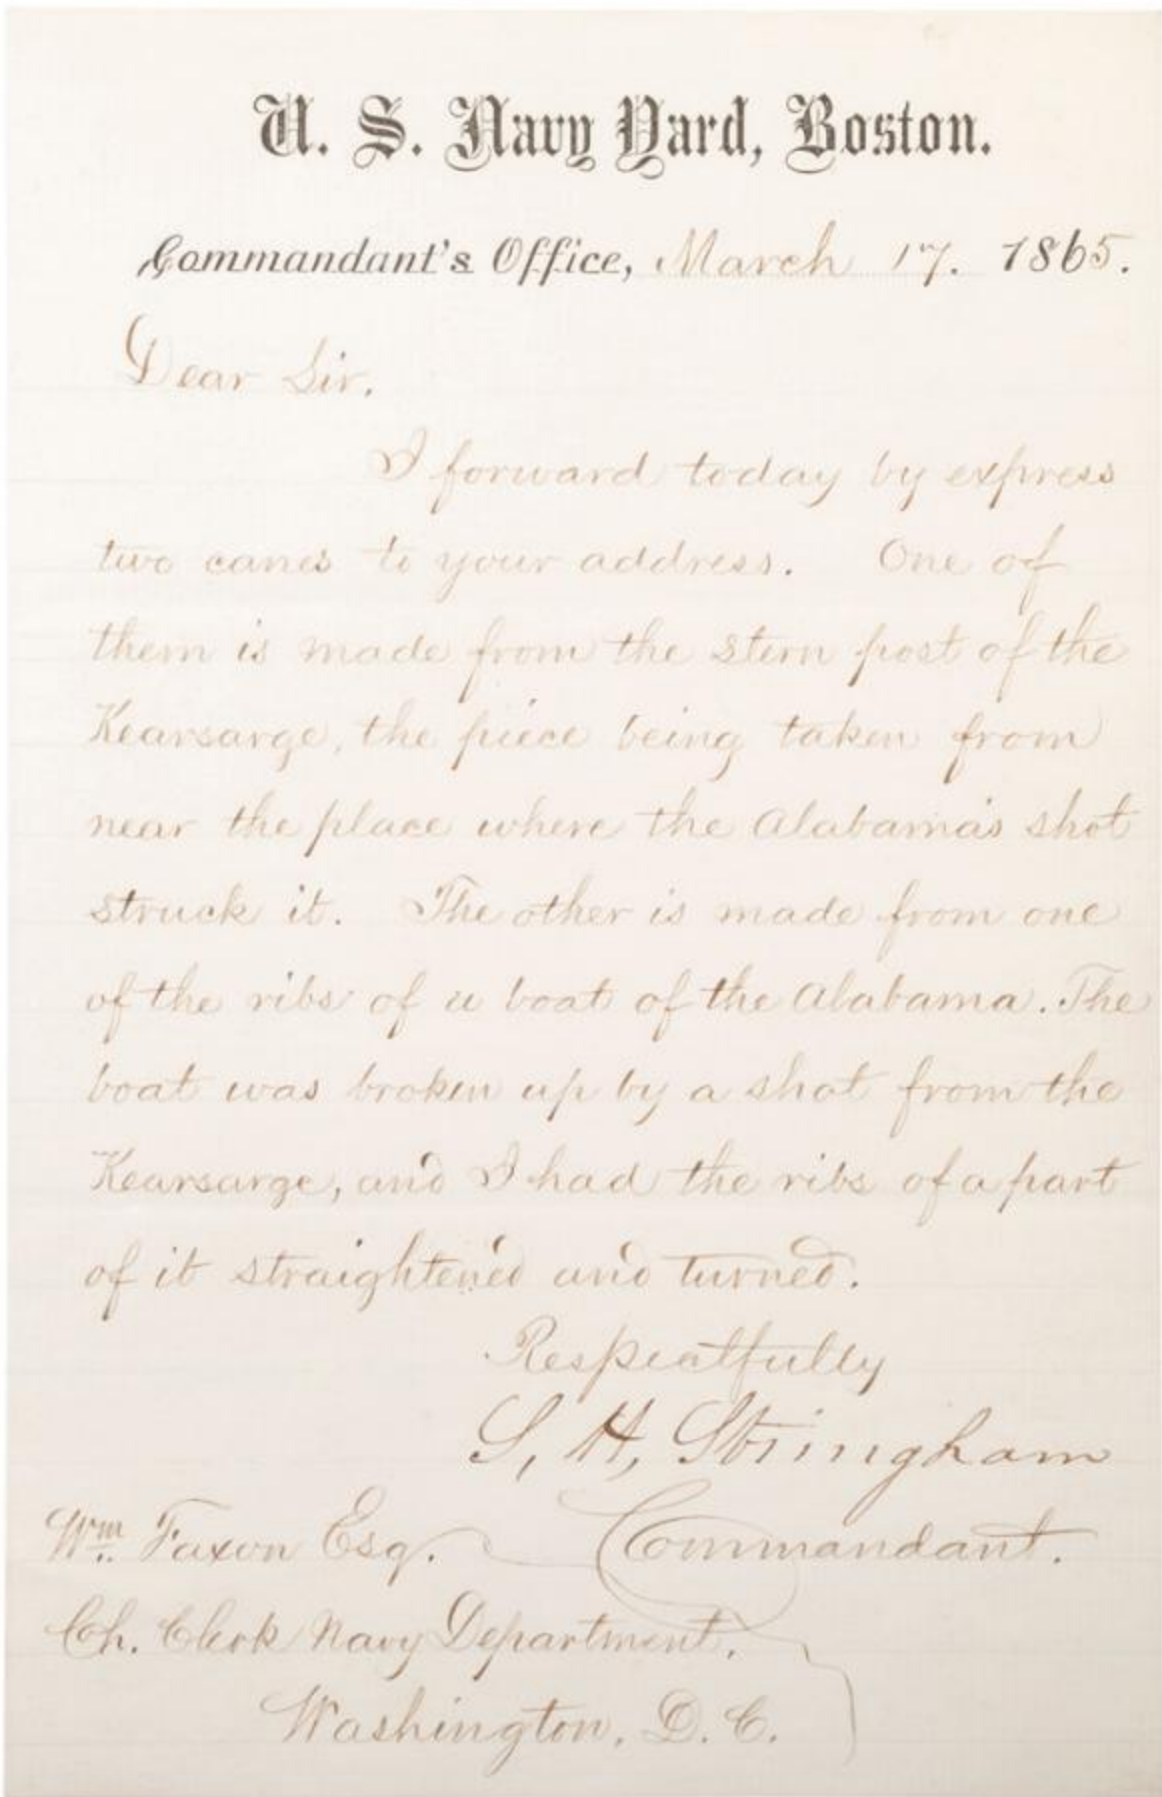 U. S. Navy Yard, Boston.
Commandant's Office, March 17. 1865.
Dear Sir.
I forward today by express
two canes to your address. One of
them is made from the stern post of the
Kearsarge, the piece being taken from
near the place where the Alabama's shot
struck it. The other is made from one
of the ribs of a boat of the Alabama. The
boat was broken up by a shot from the
Kearsarge, and I had the ribs of a part
of it straightened and turned.
Respectfully
S, H, Stringham
Wm. Faxon Esq. Commandant.
Ch. Clerk Navy Department.
Washington, D. C.